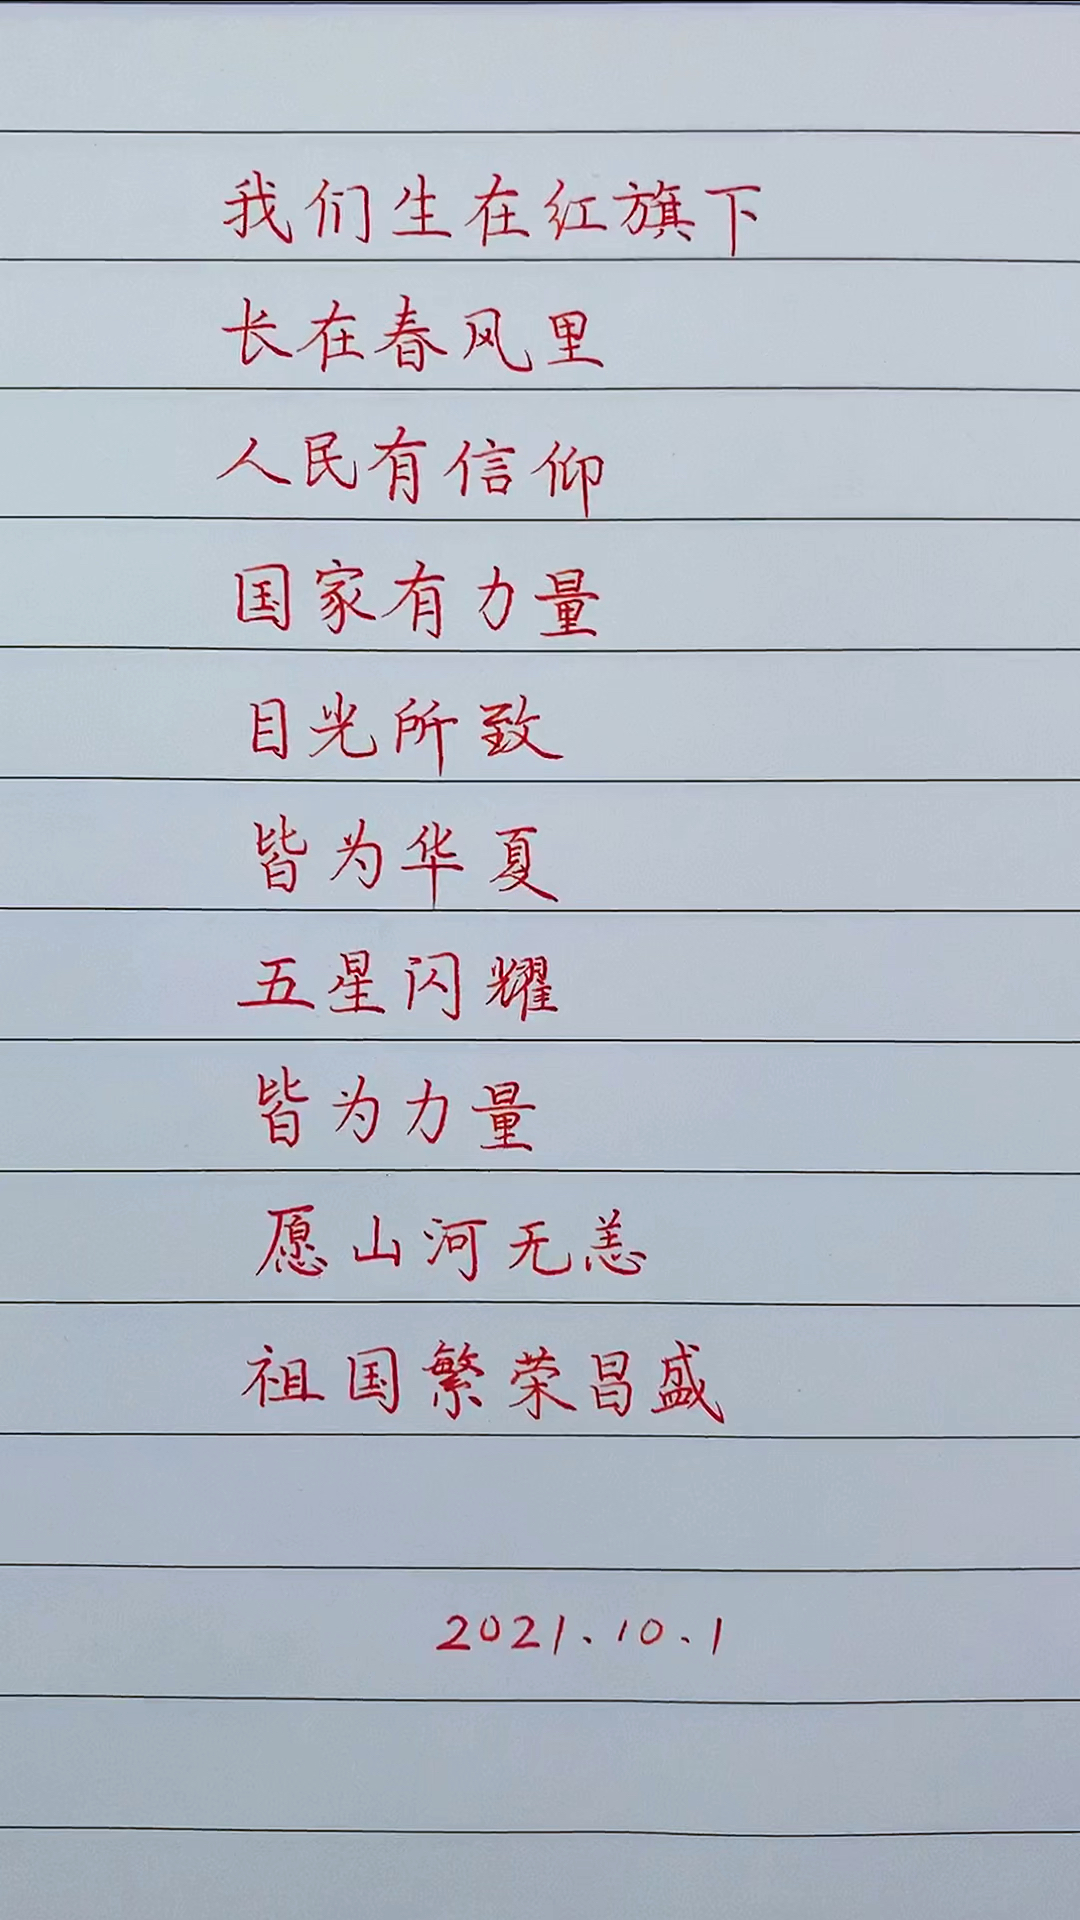 我们生在红旗下
长在春风里
人民有信仰
国家有力量
目光所致
皆为华夏
五星闪耀
皆为力量
愿山河无恙
祖国繁荣昌盛
2021.10.1